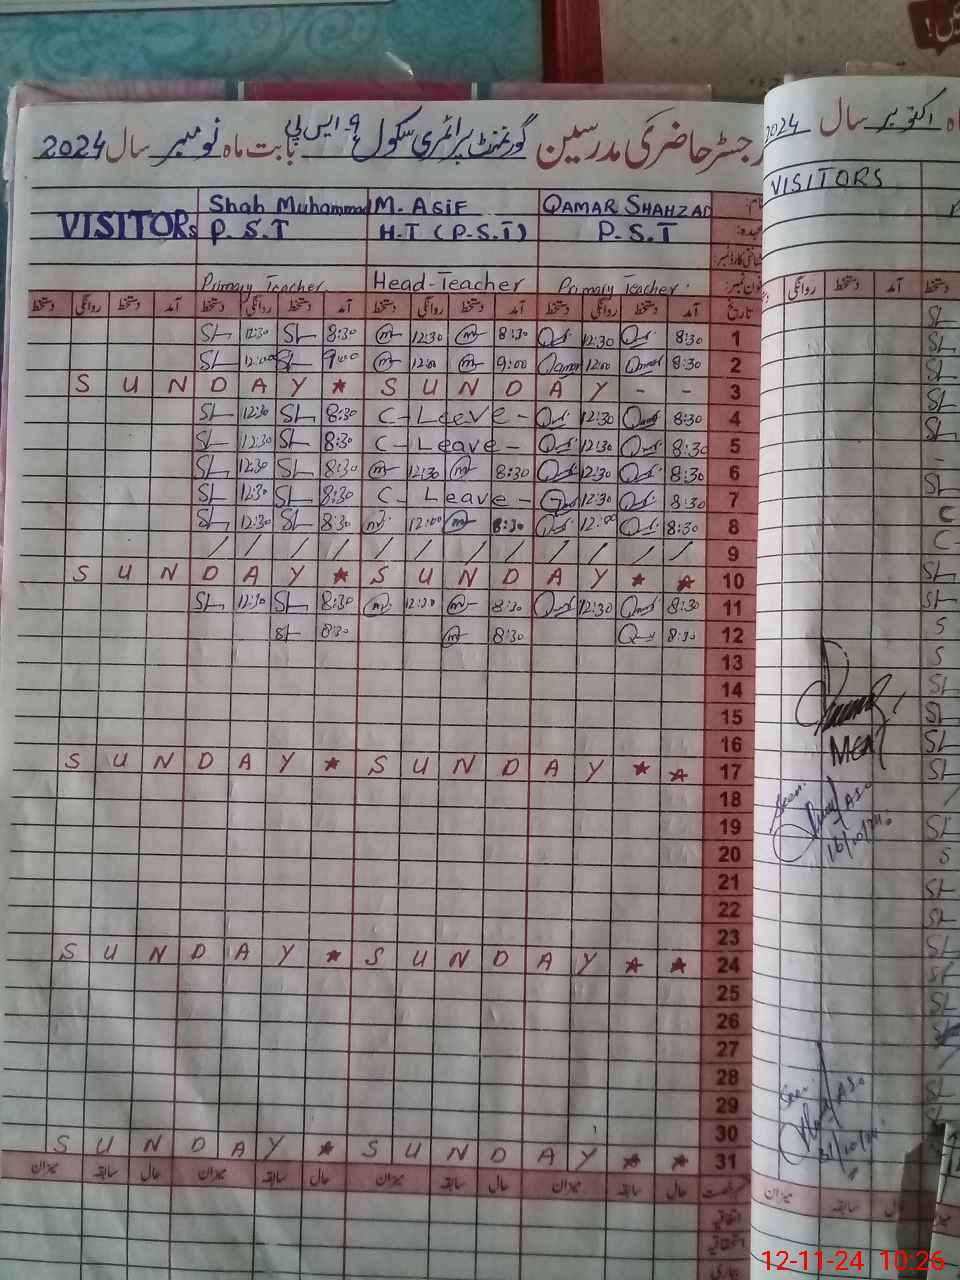 رجسٹر حاضری مدرسین گورنمنٹ پرائمری سکول 9۔ایس پی بابت ماہ نومبر سال 2024
VISITORS Shah Muhammad M. ASIF QAMAR SHAHZAD نام:
P.S.T H.T (P.S.T) P.S.T عہدہ:
شناختی کارڈ نمبر:
Primary Teacher Head-Teacher Primary Teacher فون نمبر:
تاریخ آمد دستخط روانگی دستخط آمد دستخط روانگی دستخط آمد دستخط روانگی دستخط آمد دستخط روانگی دستخط
SL 12:30 SL 8:30 m 12:30 m 8:30 12:30 8:30 1
SL 12:00 SL 9:00 m 12:00 m 9:00 Qamar 12:00 Qamar 8:30 2
S U N D A Y ★ S U N D A Y - - 3
SL 12:30 SL 8:30 C-Leave - 12:30 8:30 4
SL 12:30 SL 8:30 C-Leave - 12:30 8:30 5
SL 12:30 SL 8:30 m 12:30 m 8:30 12:30 8:30 6
SL 12:30 SL 8:30 C-Leave - 12:30 8:30 7
SL 12:30 SL 8:30 m 12:00 m 8:30 12:00 8:30 8
/ / / / / / / / / / / / 9
S U N D A Y ★ S U N D A Y ★ ★ 10
SL 12:30 SL 8:30 m 12:30 m 8:30 12:30 8:30 11
SL 8:30 m 8:30 8:30 12
13
14
15
16
S U N D A Y ★ S U N D A Y ★ ★ 17
18
19
20
21
22
23
S U N D A Y ★ S U N D A Y ★ ★ 24
25
26
27
28
29
30
S U N D A Y ★ S U N D A Y ★ ★ 31
حال سابقہ میزان حال سابقہ میزان حال سابقہ میزان
اتفاقیہ
استحقاقیہ
بیماری
ماہ اکتوبر سال 2024
VISITORS
دستخط آمد دستخط روانگی
SL
SL
SL
SL
SL
-
SL
C
C-
SL
SL
S
S
SL
SL
SL
SL
MEA
Seen
ASO
16/10/24
SL
S
SL
SL
SL
SL
SL
SL
SL
Seen
ASO
31/10/24
میزان سابقہ حال
12-11-24 10:26